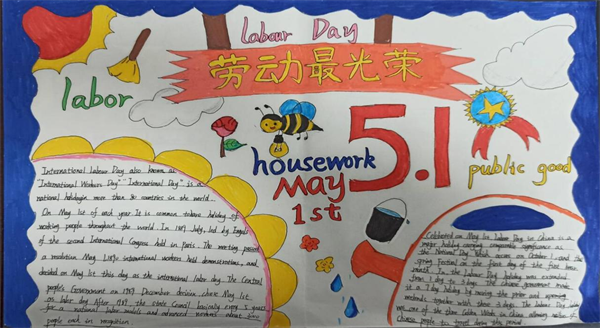 Labour Day
劳动最光荣
labor
5.1
housework
May
1st
public good
International Labour Day also known as
"International Workers Day" "International Day" is a
national holiday in more than 80 countries in the world.
On May 1st of each year It is common to have holiday of
working people throughout the world. In 1889 July, led by Engels
of the second International Congress held in Paris. The meeting passed
a resolution May 1, 1890 international workers held demonstrations, and
decided on May 1st this day as the international labor day. The Central
people's Government on 1949 December decision
on labor day. After 1989, the State Council
for a national labor models and advanced workers
people each in recognition.
Celebrated on May 1st, Labor Day in China is a
major holiday carrying comparable significance as
the National Day Which occurs on October 1, and the
Spring Festival on the first day of the first
month. In the Labor Day holiday was extended
from 1 day to 3 days. The Chinese government made
it a 7 day holiday by moving the prior and upcoming
weekends together with these 3 days. The Labor Day
was one of the three Golden Week in China, allowing
Chinese people to travel